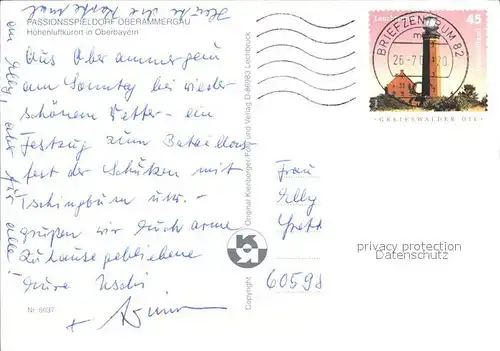 Heute Ihre Karte
PASSIONSSPIELDORF OBERAMMERGAU
Höhenluftkurort in Oberbayern
Aus Oberammergau
am Sonntag bei wieder
schönem Wetter - ein
Festzug zum Bataillons
fest der Schützen mit
Tschingbum usw. -
grüßen wir Euch arme
Zuhausegebliebene
Eure Uschi
+
Nr. 6637
an Elly, aber für alle!
Original Kienberger-Foto und Verlag D-86983 Lechbruck
Copyright
BRIEFZENTRUM 82
45
GREIFSWALDER OIE
Frau
Elly
60598
privacy protection
Datenschutz